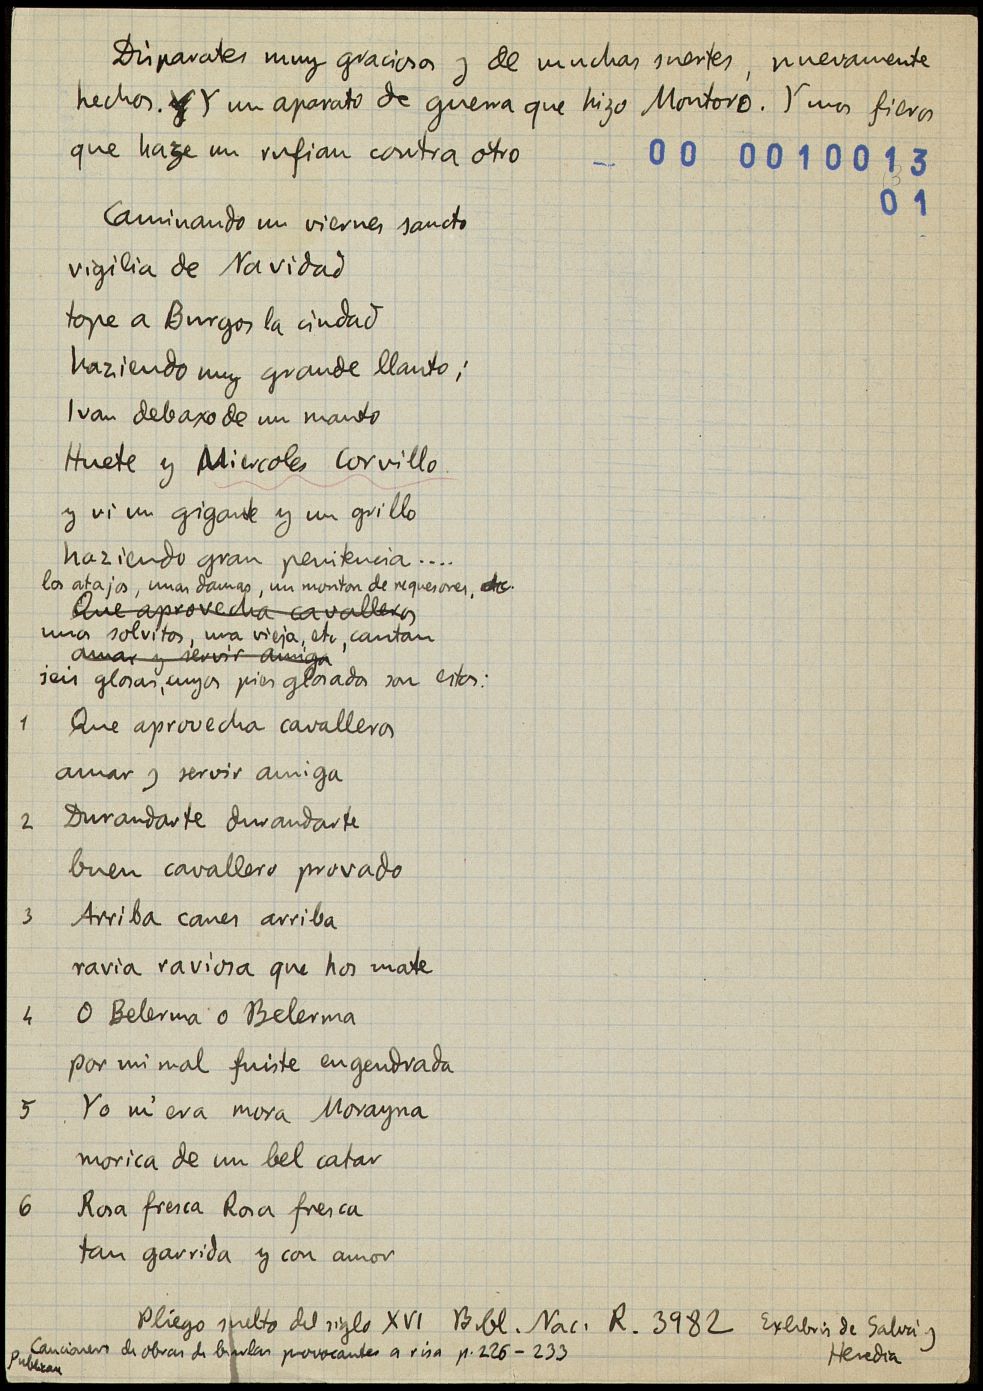 Disparates muy graciosos y de muchas suertes, nuevamente
hechos. Y Y un aparato de guerra que hizo Montoro. Y unos fieros
que haze un rufian contra otro — 00 0010013
13
01
Caminando un viernes sancto
vigilia de Navidad
tope a Burgos la ciudad
haziendo muy grande llanto;
Ivan debaxo de un manto
Huete y Miercoles Corvillo
y vi un gigante y un grillo
haziendo gran penitencia....
los atajos, unas damas, un monton de requesones, etc.
Que aprovecha cavalleros
unos solvitos, una vieja, etc, cantan
amar y servir amiga
seis glosas, cuyos pies glosados son estos:
1 Que aprovecha cavalleros
amar y servir amiga
2 Durandarte durandarte
buen cavallero provado
3 Arriba canes arriba
ravia raviosa que hos mate
4 O Belerma o Belerma
por mi mal fuiste engendrada
5 Yo m'era mora Morayna
morica de un bel catar
6 Rosa fresca Rosa fresca
tan garrida y con amor
Pliego suelto del siglo XVI Bibl. Nac. R. 3982 Exlibris de Salvá y
Heredia
Cancionero de obras de burlas provocantes a risa p. 226-233
Publican